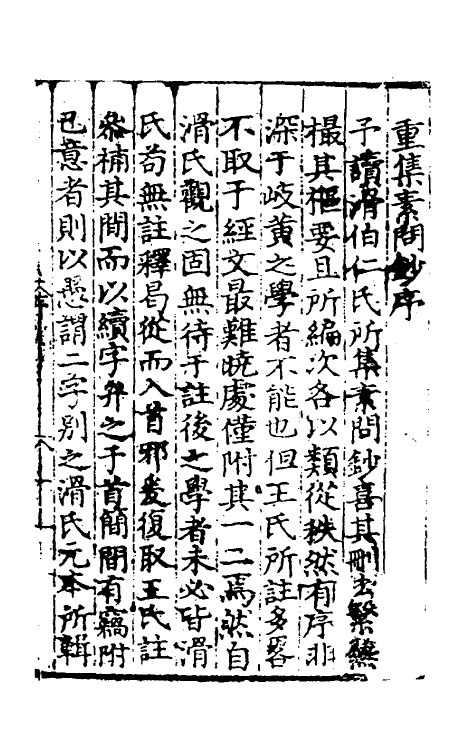 重集素問鈔序
予讀滑伯仁氏所集素問鈔喜其刪去繁蕪
撮其樞要且所編次各以類從秩然有序非
深于岐黃之學者不能也但王氏所註多畧
不取于經文最難曉處僅附其一二焉然自
滑氏觀之固無待于註後之學者未必皆滑
氏苟無註釋曷從而入首邪爰復取王氏註
叅補其間而以續字弁之于首簡間有竊附
己意者則以愚謂二字别之滑氏元本所輯